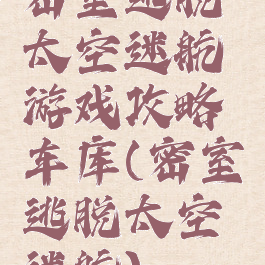 密室逃脱
太空迷航
游戏攻略
车库(密室
逃脱太空
迷航)